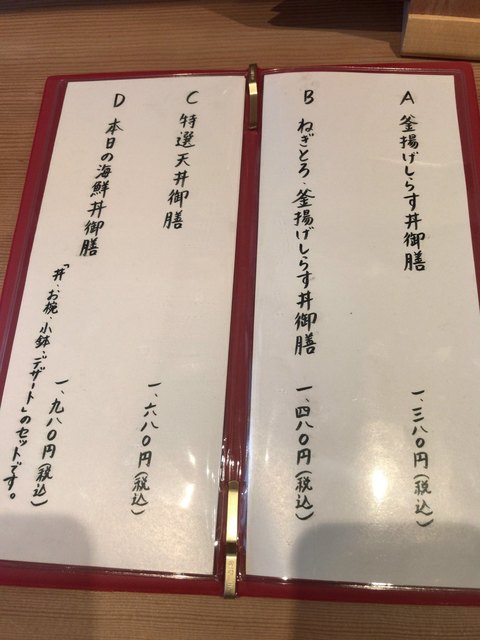 A 釜揚げしらす丼御膳
一、三八〇円(税込)
B ねぎとろ、釜揚げしらす丼御膳
一、四八〇円(税込)
C 特選天丼御膳
一、六八〇円(税込)
D 本日の海鮮丼御膳
一、九八〇円(税込)
「丼、お椀、小鉢、デザート」のセットです。